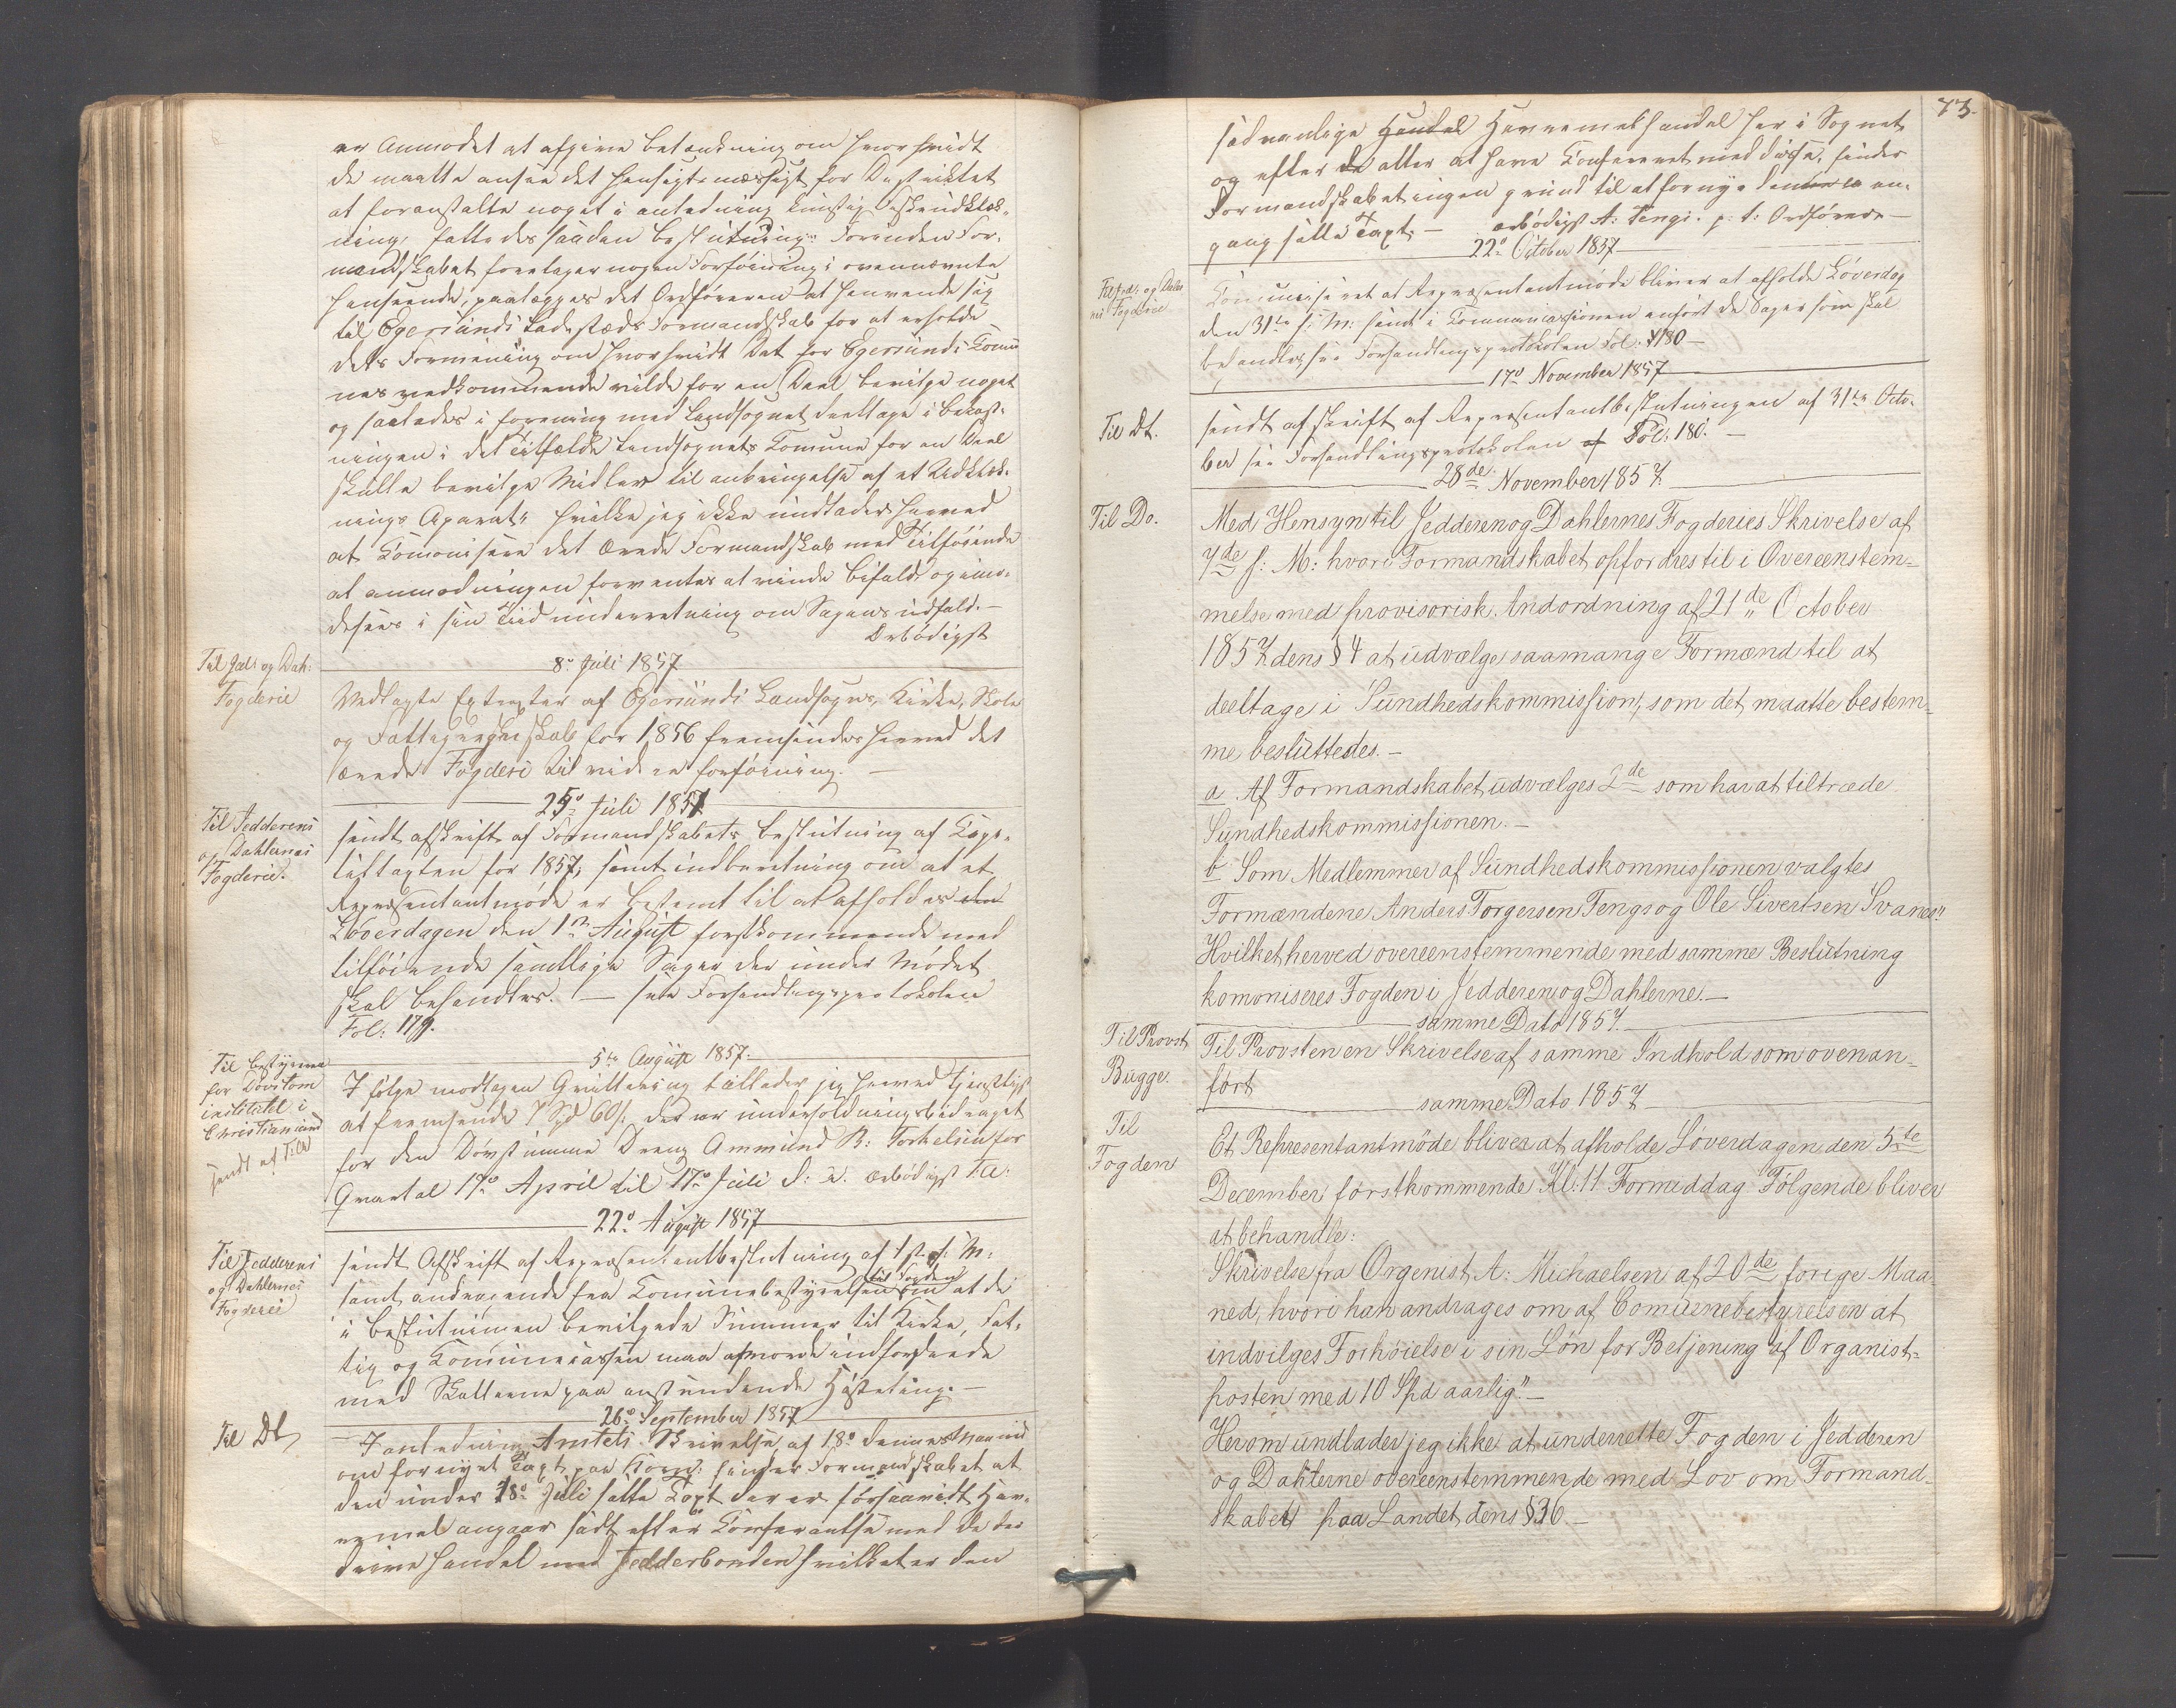 er Anmodet at afgive betænkning om hvorhvidt
de maatte ansee det hensigtsmæssigt for Distriktet
at foranstalte noget i anledning kunstig Fiskeudklæk-
ning, fattedes saadan beslutning: Forinden For-
mandskabet foretager nogen Forföining i ovennævnte
henseende, paalægges det Ordföreren at henvende sig
til Egersunds Ladesteds Formandskab for at erholde
dets Formening om hvorhvidt Det for Egersunds Comu
nes vedkommende vilde for en Deel bevilge noget
og saaledes i forening med Landsognet deeltage i bekost-
ningen i det Tilfælde Landsognets Comune for en Deel
skulle bevilge Midler til anbringelse af et Udklæk-
nings Aparat" hvilke jeg ikke undlader herved
at Komonisere det ærede Formandskab med Tilföiende
at anmodningen forventes at vinde bifald og imö-
desees i sin Tiid underretning om Sagens udfald. -
Ærbödigst
8de Juli 1857
Til Jæd: og Dah:
Fogderie
Vedlagte Extracter af Egersunds Landsogns, Kirke, Skole
og Fattigregnskab for 1856 fremsendes herved det
ærede Fogderi til videre forföining. -
25de Juli 1857
Til Jedderens
og Dahlernes
Fogderie.
sendt afskrift af Formandskabets beslutning af Capi-
teltaxten for 1857, samt indberetning om at et
Representantmöde er bestemt til at afholdes den
Löverdagen den 1ste August förstkommende med
tilföiende samtlige Sager der under Mödet
skal behandles. - see Forhandlingsprotokolen
Fol: 179.
5te August 1857.
Til bestyreren
for Dövstom
institutet i
Christiansund
sendt af Till
I fölge modtagen Qvittering tillader jeg herved tjenstligst
at fremsende 7 Spd 60 s: der er underholdningsbidraget
for den Dövstumme Dreng Ammund R: Torkelsen for
Qvartal 17de April til 17de Juli d: A. ærbödigst
22de August 1857
Til Jedderens
og Dahlernes
Fogderei
sendt Afskrift af Representantbeslutning af 1ste f: M:
samt andragende fra Comunebestyrelsen til Fogden om at de
i beslutningen bevilgede Summer til Kirke, Fat-
tig og Comunecassen maa afvorde indfordrede
med Skatterne paa anstundende Hösteting. -
26de September 1857
Til Dt
I anledning Amtets Skrivelse af 18de dennes Maaned
om fornyet Taxt paa Korn: finder Formandskabet at
den under 18de Juli satte Taxt der er forsaavidt Hav-
remel angaar sadt efter Conferantse med de der
drive handel med Jedderbonden hvilket er den
73.
sædvanlige Handel Havremelshandel her i Sognet
og efter de atter at have Confereret med disse, finder
Formandskabet ingen grund til at fornye den een en-
gang satte Taxt. - ærbödigst A: Tengs. p: t: Ordförer -
22de October 1857
Til Jæd: og Dahler
nes Fogderie
Comuniseret at Representantmöde bliver at afholde Löverdag
den 31te d: M: samt i Communicassionen anfört de Sager som skal
behandles, see Forhandlingsprotokolen Fol: 180 -
17de November 1857
Til Dt.
sendt afskrift af Representantbeslutningen af 31te Octo-
ber see Forhandlingsprotokolen af Fol: 180. -
28de November 1857.
Til Do.
Med Hensyn til Jedderen og Dahlernes Fogderies Skrivelse af
7de f: M: hvori Formandskabet opfordres til i Overeenstem=
melse med provisorisk Andordning af 21de October
1857 dens § 4 at udvælge saamange Formænd til at
deeltage i Sundhedskommission, som det maatte bestem=
me besluttedes. -
a Af Formandskabet udvælges 2de som har at tiltræde
Sundhedskommissionen. -
b Som Medlemmer af Sundhedskommissionen valgtes
Formændene Anders Torgersen Tengs og Ole Sivertsen Svanes"
Hvilket herved overeenstemmende med samme Beslutning
komoniseres Fogden i Jedderen og Dahlerne. -
samme Dato 1857.
Til Provst
Bugge.
Til Provsten en Skrivelse af samme Indhold som ovenan=
fört
samme Dato 1857
Til
Fogden
Et Representantmöde bliver at afholde Löverdagen den 5te
December förstkommende Kl: 11 Formiddag Fölgende bliver
at behandle:
Skrivelse fra Orgenist A: Michaelsen af 20de forige Maa
ned, hvori han andrages om af Comunebestyrelsen at
indvilges Forhöielse i sin Lön for Betjening af Organist=
posten med 10 Spd aarlig." -
Herom undlader jeg ikke at underrette Fogden i Jedderen
og Dahlerne overeenstemmende med Lov om Formand=
skabet paa Landet dens § 36 -